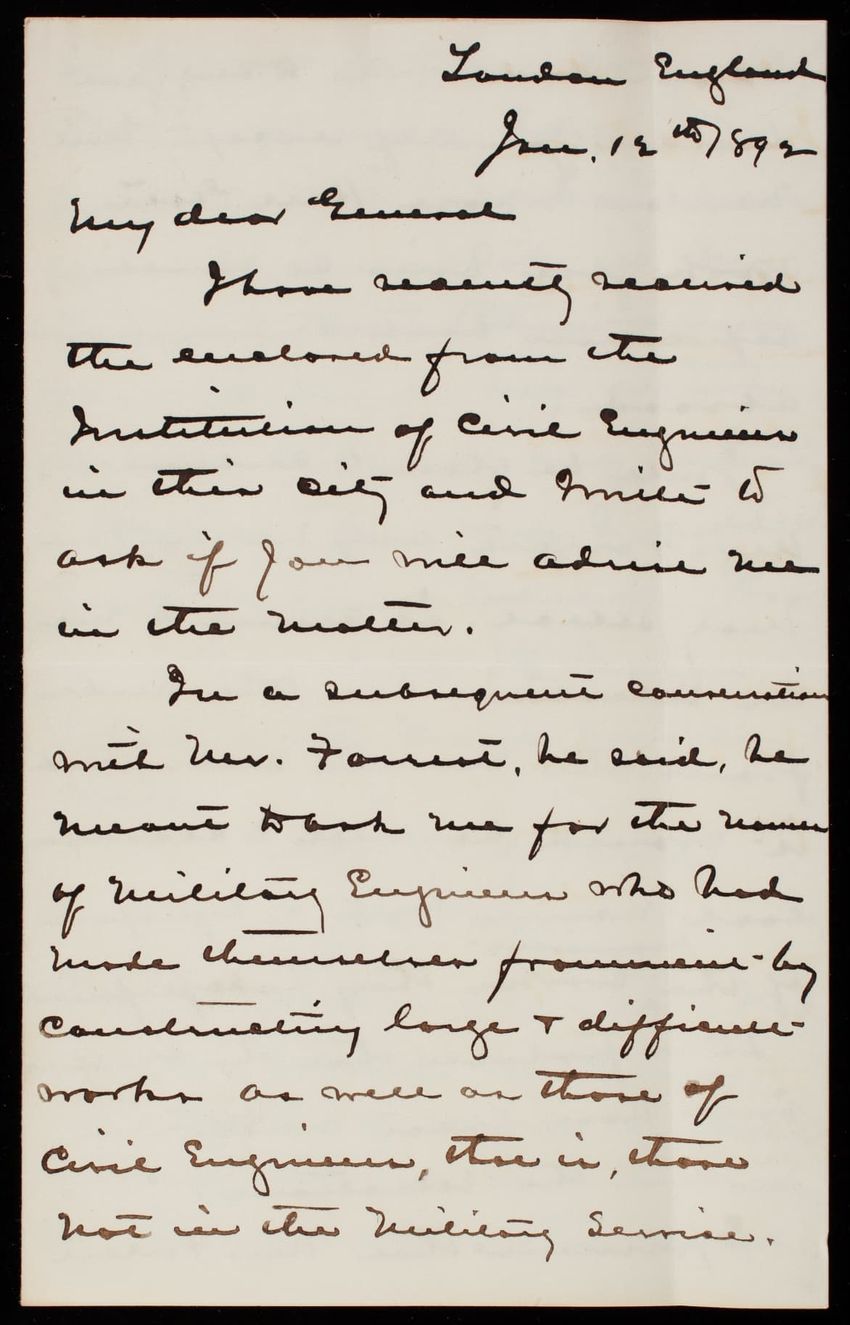 London England
Jan. 12th 1892
My dear General
I have recently received
the enclosed from the
Institution of Civil Engineers
in this city and I write to
ask if you will advise me
in the matter.
In a subsequent conversation
with Mr. Forrest, he said, he
meant to ask me for the names
of Military Engineers who had
made themselves prominent by
constructing large & difficult
works as well as those of
Civil Engineers, that is, those
not in the Military Service.